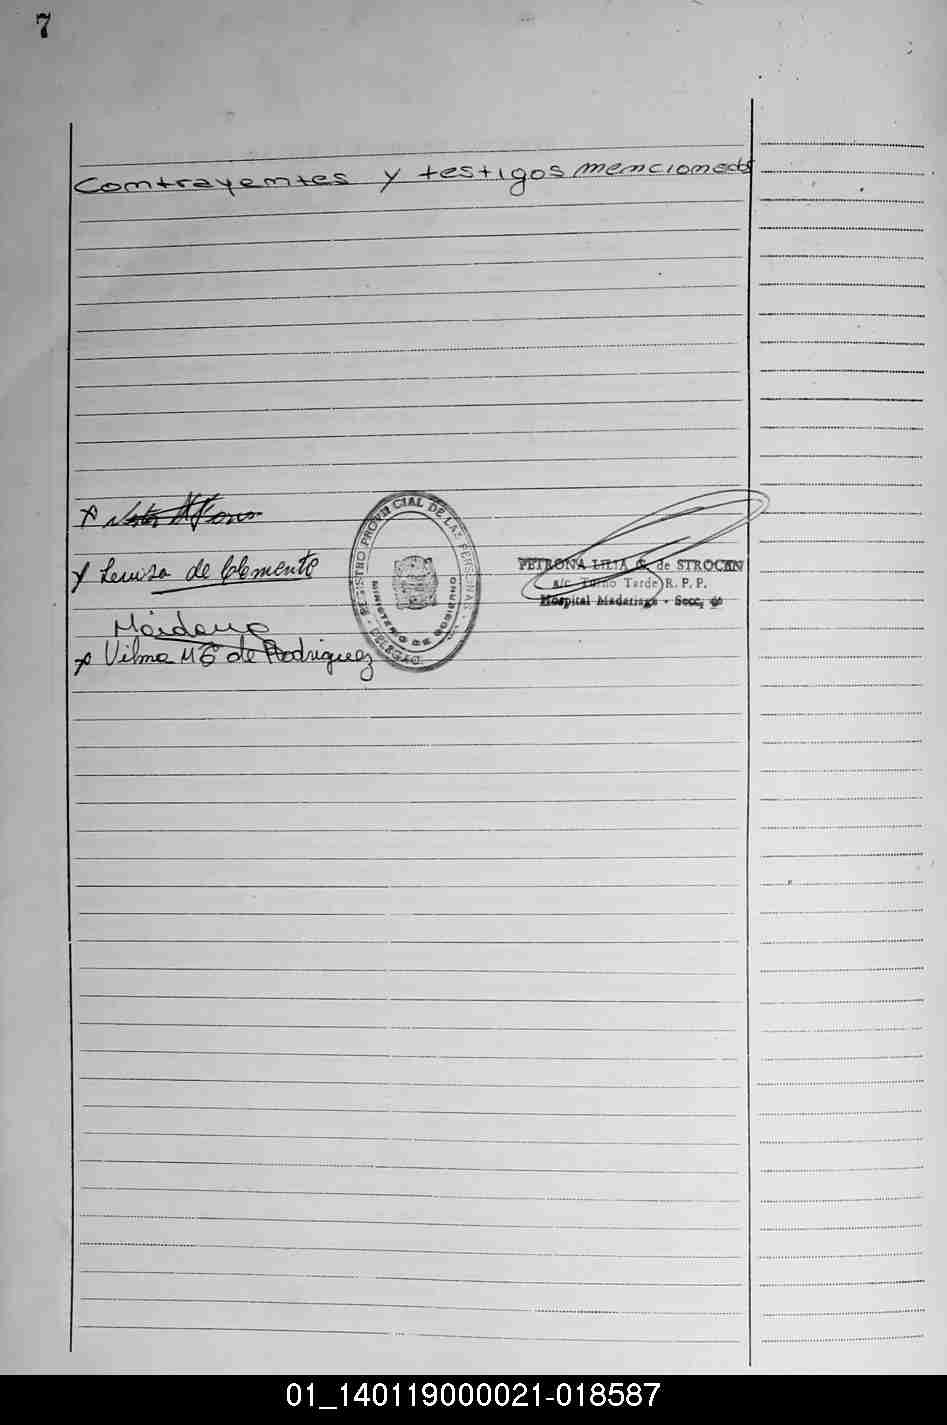 7
Contrayentes y testigos mencionados
x Nestor
REGISTRO PROVINCIAL DE LAZ PERSONAS
MINISTERIO DE GOBIERNO
PETRONA LILIA G. de STROCEN
a/c. Turno Tarde R. P. P.
Hospital Madariaga - Secc.
x Luisa de Clemente
Maidana
x Vilma M G de Rodriguez
01_140119000021-018587